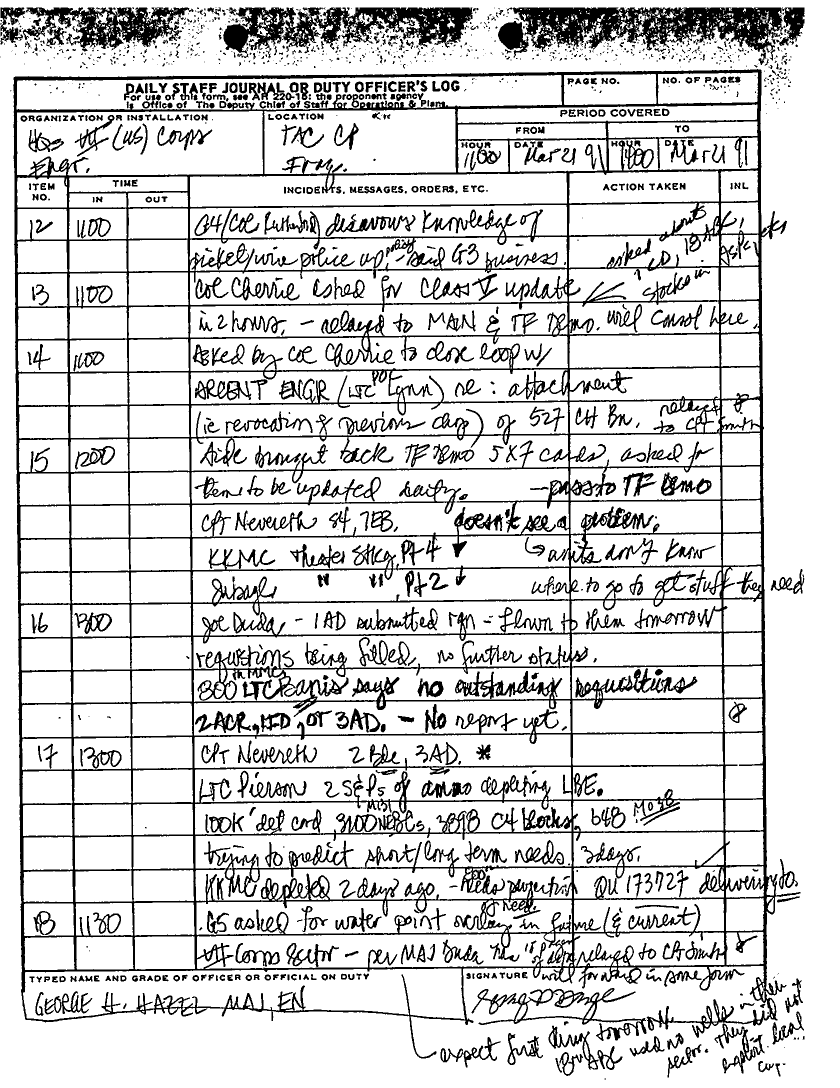 DAILY STAFF JOURNAL OR DUTY OFFICER'S LOG
For use of this form, see AR 220-15: the proponent agency
is Office of The Deputy Chief of Staff for Operations & Plans.
PAGE NO.
NO. OF PAGES
ORGANIZATION OR INSTALLATION
HQs VII (US) Corps
Engr.
LOCATION
TAC CP
Iraq.
PERIOD COVERED
FROM
TO
HOUR
1100
DATE
Mar 21 91
HOUR
1400
DATE
Mar 21 91
ITEM NO.
TIME
IN
OUT
INCIDENTS, MESSAGES, ORDERS, ETC.
ACTION TAKEN
INL
12 1100 G4/COL disavows knowledge of
picket/wire police up, policy - said G3 business.
asked about
1CD, 18
stocks in
13 1100 COL Cherrie asked for Class V update
in 2 hours. - relayed to MAIN & TF Demo. will consol here.
14 1100 Asked by COL Cherrie to close loop w/
ARCENT ENGR (LTC Lynn) POC re: attachment
(ie revocation of previous chop) of 527 CH Bn. relayed
to CPT Smith
15 1200 Aide brought back TF Demo 5X7 cards, asked for
them to be updated daily. - pass to TF Demo
CPT Nevereth S4, 7EB. doesn't see a problem.
KKMC Theater Stkg, Pt 4 units don't know
Jubayl " ", Pt 2 where to go to get stuff they need
16 1300 Joe Duda - 1AD submitted rqn - flown to them tomorrow
requistions being filled, no further status.
1300 LTC Banis says no outstanding requisitions
in MMC
2ACR, 1ID, or 3AD. - No report yet.
17 1300 CPT Nevereth 2 Bde, 3AD. *
LTC Pierson 2 S&Ps of ammo depleting LBE.
100K' det cord, 3100 NEBCs, M131 3898 C4 blocks, 648 M038
trying to predict short/long term needs. 3 days.
KKMC depleted 2 days ago. - Needs projection QU 173727 delivering to.
of need.
18 1130 G5 asked for water point overlay in future (& current)
VII Corps Sector - per MAJ Duda relayed to CPT Smith
will forward in some form
TYPED NAME AND GRADE OF OFFICER OR OFFICIAL ON DUTY
GEORGE H. HAZEL MAJ, EN
SIGNATURE
expect first thing tomorrow.
18th ABC used no wells in their
sector. They did not
exploit local